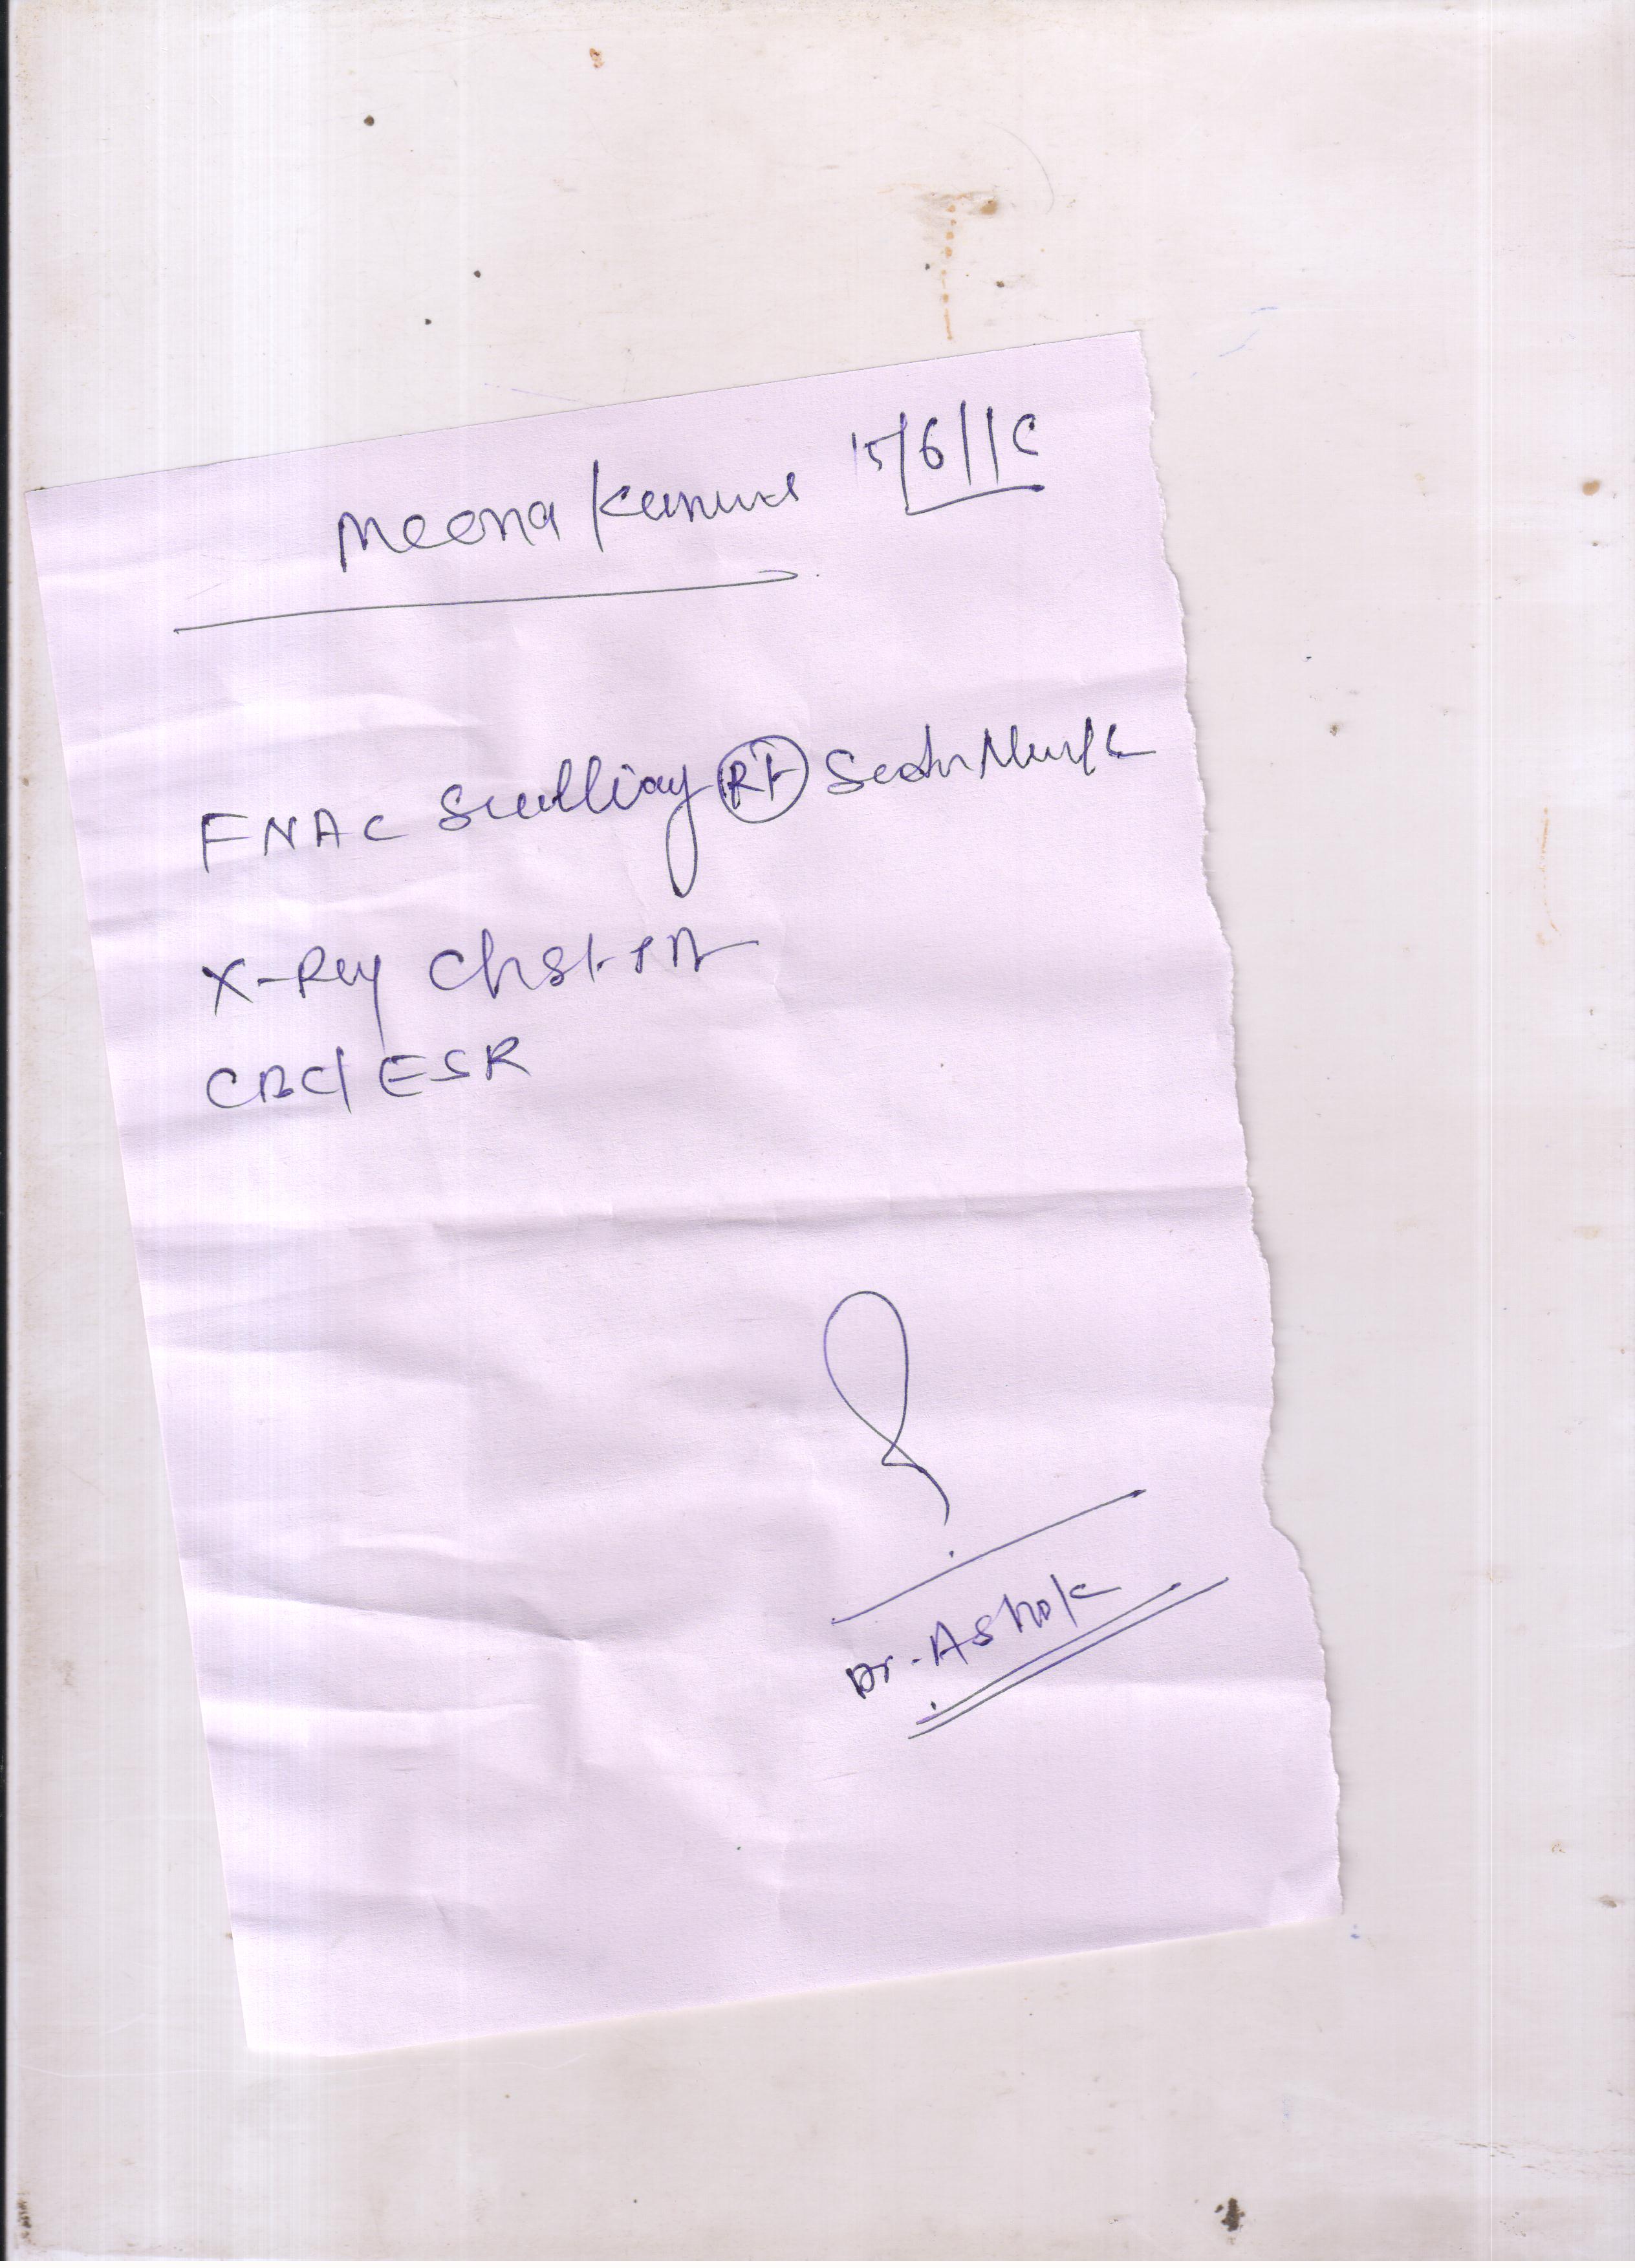 Meena Kanwar 15/6/16
FNAC Swelling RT Side Neck
X-Ray Chest PA
CBC/ESR
Dr. Ashok